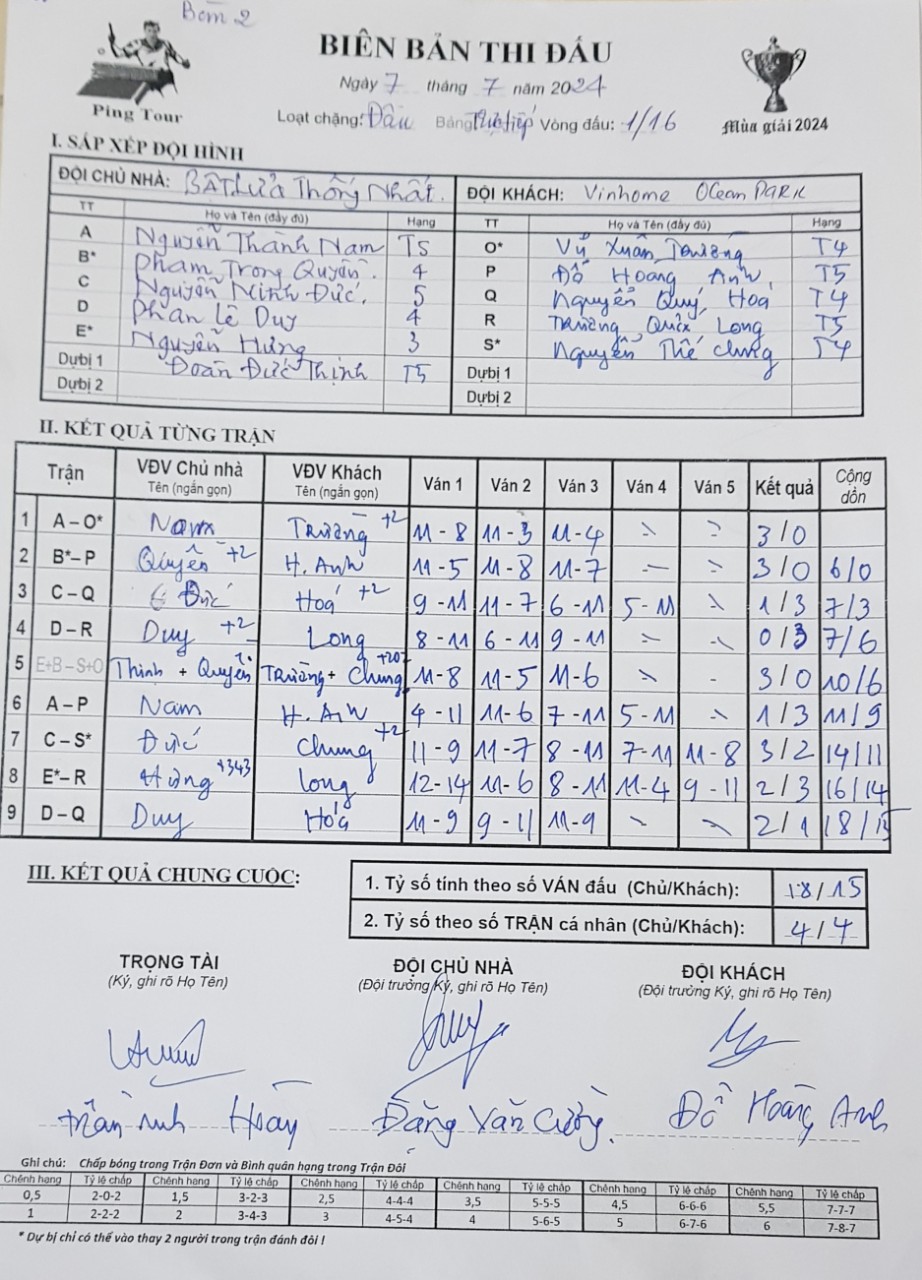 Bàn 2
BIÊN BẢN THI ĐẤU
Ngày 7 tháng 7 năm 2024
Ping Tour
Loạt chặng: Đấu Bảng Trực tiếp Vòng đấu: 1/16
Mùa giải 2024
I. SẮP XẾP ĐỘI HÌNH
ĐỘI CHỦ NHÀ: BẬT LỬA Thống Nhất. ĐỘI KHÁCH: Vinhome Ocean PARK
TT Họ và Tên (đầy đủ) Hạng TT Họ và Tên (đầy đủ) Hạng
A Nguyễn Thành Nam T5 O* Vũ Xuân Trường T4
B* Phạm Trọng Quyền. 4 P Đỗ Hoàng Anh T5
C Nguyễn Minh Đức. 5 Q Nguyễn Quý Hoá T4
D Phan Lê Duy 4 R Trương Quốc Long T5
E* Nguyễn Hưng 3 S* Nguyễn Thế Chung T4
Dự bị 1 Đoàn Đức Thịnh T5 Dự bị 1
Dự bị 2 Dự bị 2
II. KẾT QUẢ TỪNG TRẬN
Trận VĐV Chủ nhà Tên (ngắn gọn) VĐV Khách Tên (ngắn gọn) Ván 1 Ván 2 Ván 3 Ván 4 Ván 5 Kết quả Cộng dồn
1 A – O* Nam Trường +2 11 - 8 11 - 3 11 - 4 - - 3 / 0
2 B* – P Quyền +2 H. Anh 11 - 5 11 - 8 11 - 7 - - 3 / 0 6/0
3 C – Q Đức Hoá +2 9 - 11 11 - 7 6 - 11 5 - 11 - 1 / 3 7/3
4 D – R Duy +2 Long 8 - 11 6 - 11 9 - 11 - - 0 / 3 7/6
5 E+B – S+O Thịnh + Quyền Trường + Chung +202 11 - 8 11 - 5 11 - 6 - - 3 / 0 10/6
6 A – P Nam H. Anh 4 - 11 11 - 6 7 - 11 5 - 11 - 1 / 3 11/9
7 C – S* Đức Chung +2 11 - 9 11 - 7 8 - 11 7 - 11 11 - 8 3 / 2 14/11
8 E* – R Hưng +343 Long 12 - 14 11 - 6 8 - 11 11 - 4 9 - 11 2 / 3 16/14
9 D – Q Duy Hoá 11 - 9 9 - 11 11 - 9 - - 2 / 1 18/15
III. KẾT QUẢ CHUNG CUỘC:
1. Tỷ số tính theo số VÁN đấu (Chủ/Khách): 18/15
2. Tỷ số theo số TRẬN cá nhân (Chủ/Khách): 4/4
TRỌNG TÀI ĐỘI CHỦ NHÀ ĐỘI KHÁCH
(Ký, ghi rõ Họ Tên) (Đội trưởng Ký, ghi rõ Họ Tên) (Đội trưởng Ký, ghi rõ Họ Tên)
Trần Anh Đặng Văn Cường. Đỗ Hoàng Anh
Ghi chú: Chấp bóng trong Trận Đơn và Bình quân hạng trong Trận Đôi
Chênh hạng Tỷ lệ chấp Chênh hạng Tỷ lệ chấp Chênh hạng Tỷ lệ chấp Chênh hạng Tỷ lệ chấp Chênh hạng Tỷ lệ chấp Chênh hạng Tỷ lệ chấp
0,5 2-0-2 1,5 3-2-3 2,5 4-4-4 3,5 5-5-5 4,5 6-6-6 5,5 7-7-7
1 2-2-2 2 3-4-3 3 4-5-4 4 5-6-5 5 6-7-6 6 7-8-7
* Dự bị chỉ có thể vào thay 2 người trong trận đánh đôi !